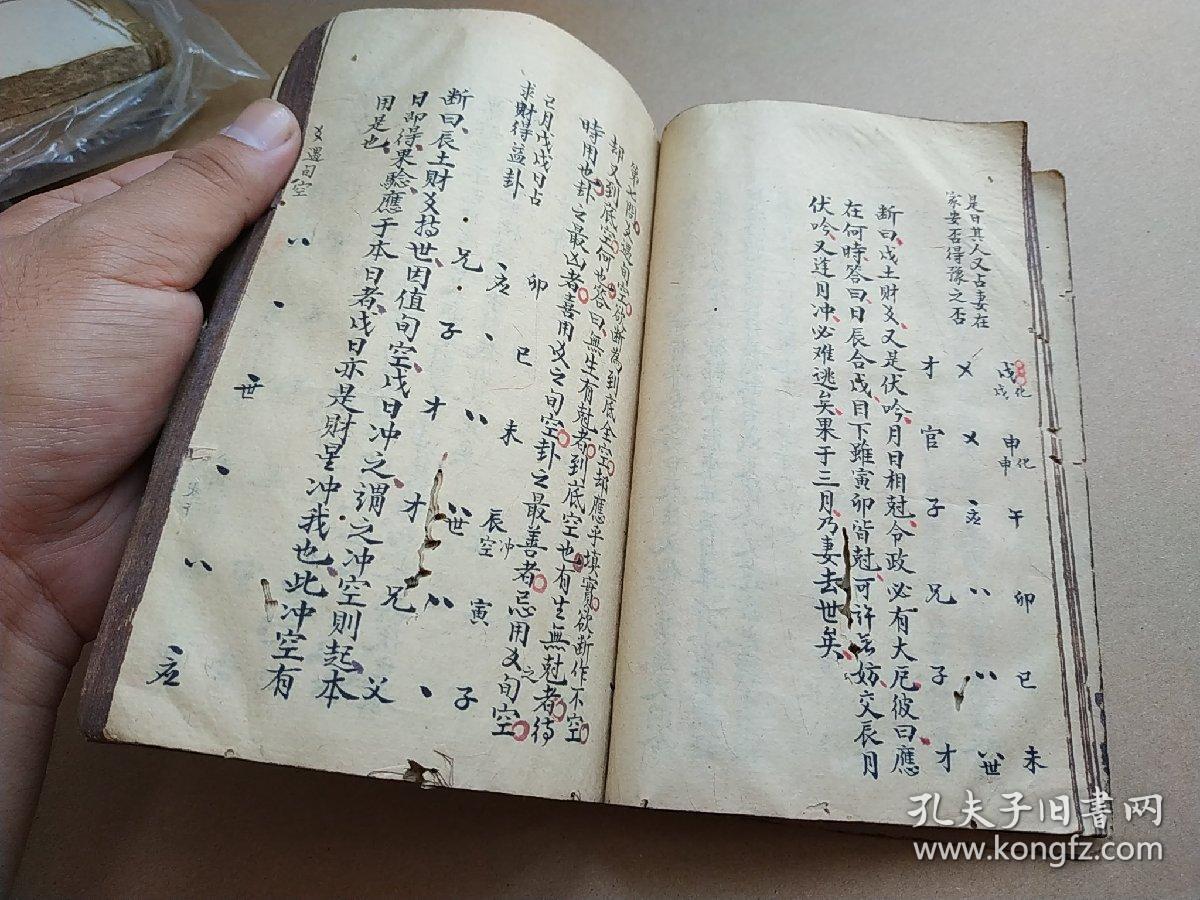 是日其人又占妻在
家安否得豫之否
戌 化戌 申 化申 午 卯 巳 未
乂 乂 应 、、 、、 、、世
才 官 子 兄 子 才
断曰、戌土財爻、又是伏吟、月日相尅、令政必有大厄、彼曰應
在何時、答曰、日辰合戌、目下雖寅卯皆尅、可許無妨、交辰月
伏吟、又逢月冲、必难逃矣、果于三月、乃妻去世矣、
第七問、爻遇旬空、欲断為到底全空、却應乎填實、欲断作不空
却又到底空、何也、答曰、無生有尅者、到底空也、有生無尅者、待
時用也、卦之最凶者、喜用爻之旬空、卦之最善者、忌用爻之旬空
巳月戊戌日占
求財得益卦
卯 巳 未 辰 空 冲 寅 子
应、 、 、、 、、世 、、 、
兄 子 才 才 兄 父
断曰、辰土財爻持世、因值旬空、戌日冲之、謂之冲空則起、本
日即得、果驗、應于本日者、戌日亦是財星冲我也、此冲空有
用是也、
爻遇旬空
、、 、 世 、 、、 应